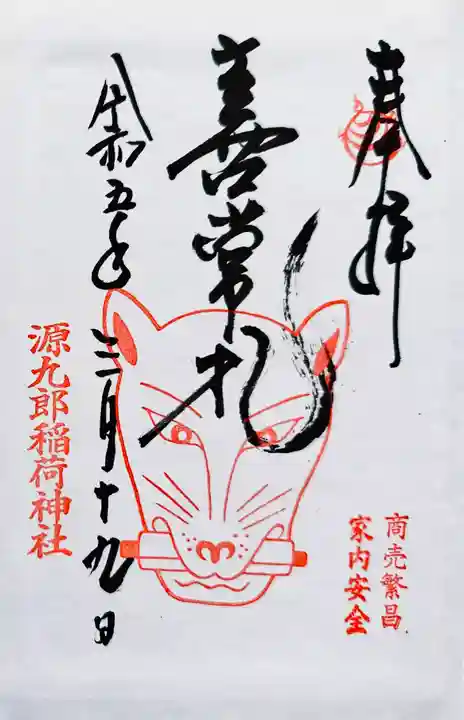 奉拝
喜常礼
令和五年三月十九日
源九郎稲荷神社
商売繁昌
家内安全